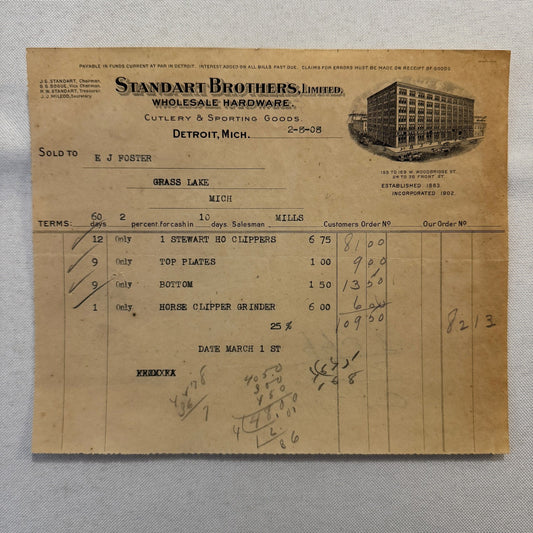 PAYABLE IN FUNDS CURRENT AT PAR IN DETROIT. INTEREST ADDED ON ALL BILLS PAST DUE. CLAIMS FOR ERRORS MUST BE MADE ON RECEIPT OF GOODS
J. S. STANDART, Chairman.
G. G. BOGUE, Vice Chairman.
R. W. STANDART, Treasurer.
J. J. McLEOD, Secretary.
STANDART BROTHERS, LIMITED.
WHOLESALE HARDWARE.
CUTLERY & SPORTING GOODS.
DETROIT, MICH. 2-8-08
193 TO 199 W. WOODBRIDGE ST.
24 TO 76 FRONT ST.
ESTABLISHED 1863.
INCORPORATED 1902.
SOLD TO E J FOSTER
GRASS LAKE
MICH
TERMS: 60 days 2 percent for cash in 10 days Salesman MILLS Customers Order No Our Order No
12 Only 1 STEWART HO CLIPPERS 6 75 81 00
9 Only TOP PLATES 1 00 9 00
9 Only BOTTOM 1 50 13 50
1 Only HORSE CLIPPER GRINDER 6 00 6 00
25 % 109 50 82 13
DATE MARCH 1 ST
4050
450